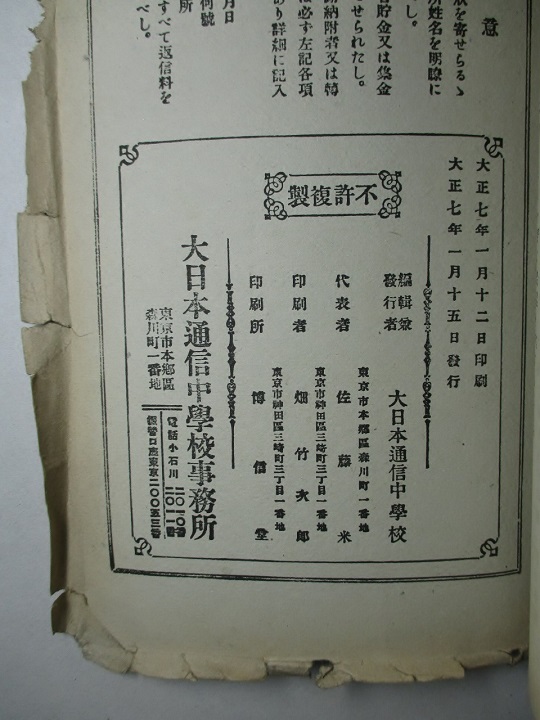 意
状を寄せらるゝ
所姓名を明瞭に
し。
貯金又は為金
せられたし。
納附者又は轉
必ず左記各項
あり詳細に記入
月日
何號
所
すべて返信料を
べし。
大正七年一月十二日印刷
大正七年一月十五日發行
不許複製
編輯兼
發行者
大日本通信中學校
東京市本郷區森川町一番地
代表者 佐藤米
東京市神田區三崎町三丁目一番地
印刷者 畑竹次郎
東京市神田區三崎町三丁目一番地
印刷所 博信堂
大日本通信中學校事務所
東京市本郷區
森川町一番地
電話小石川
振替口座東京二〇〇五三番